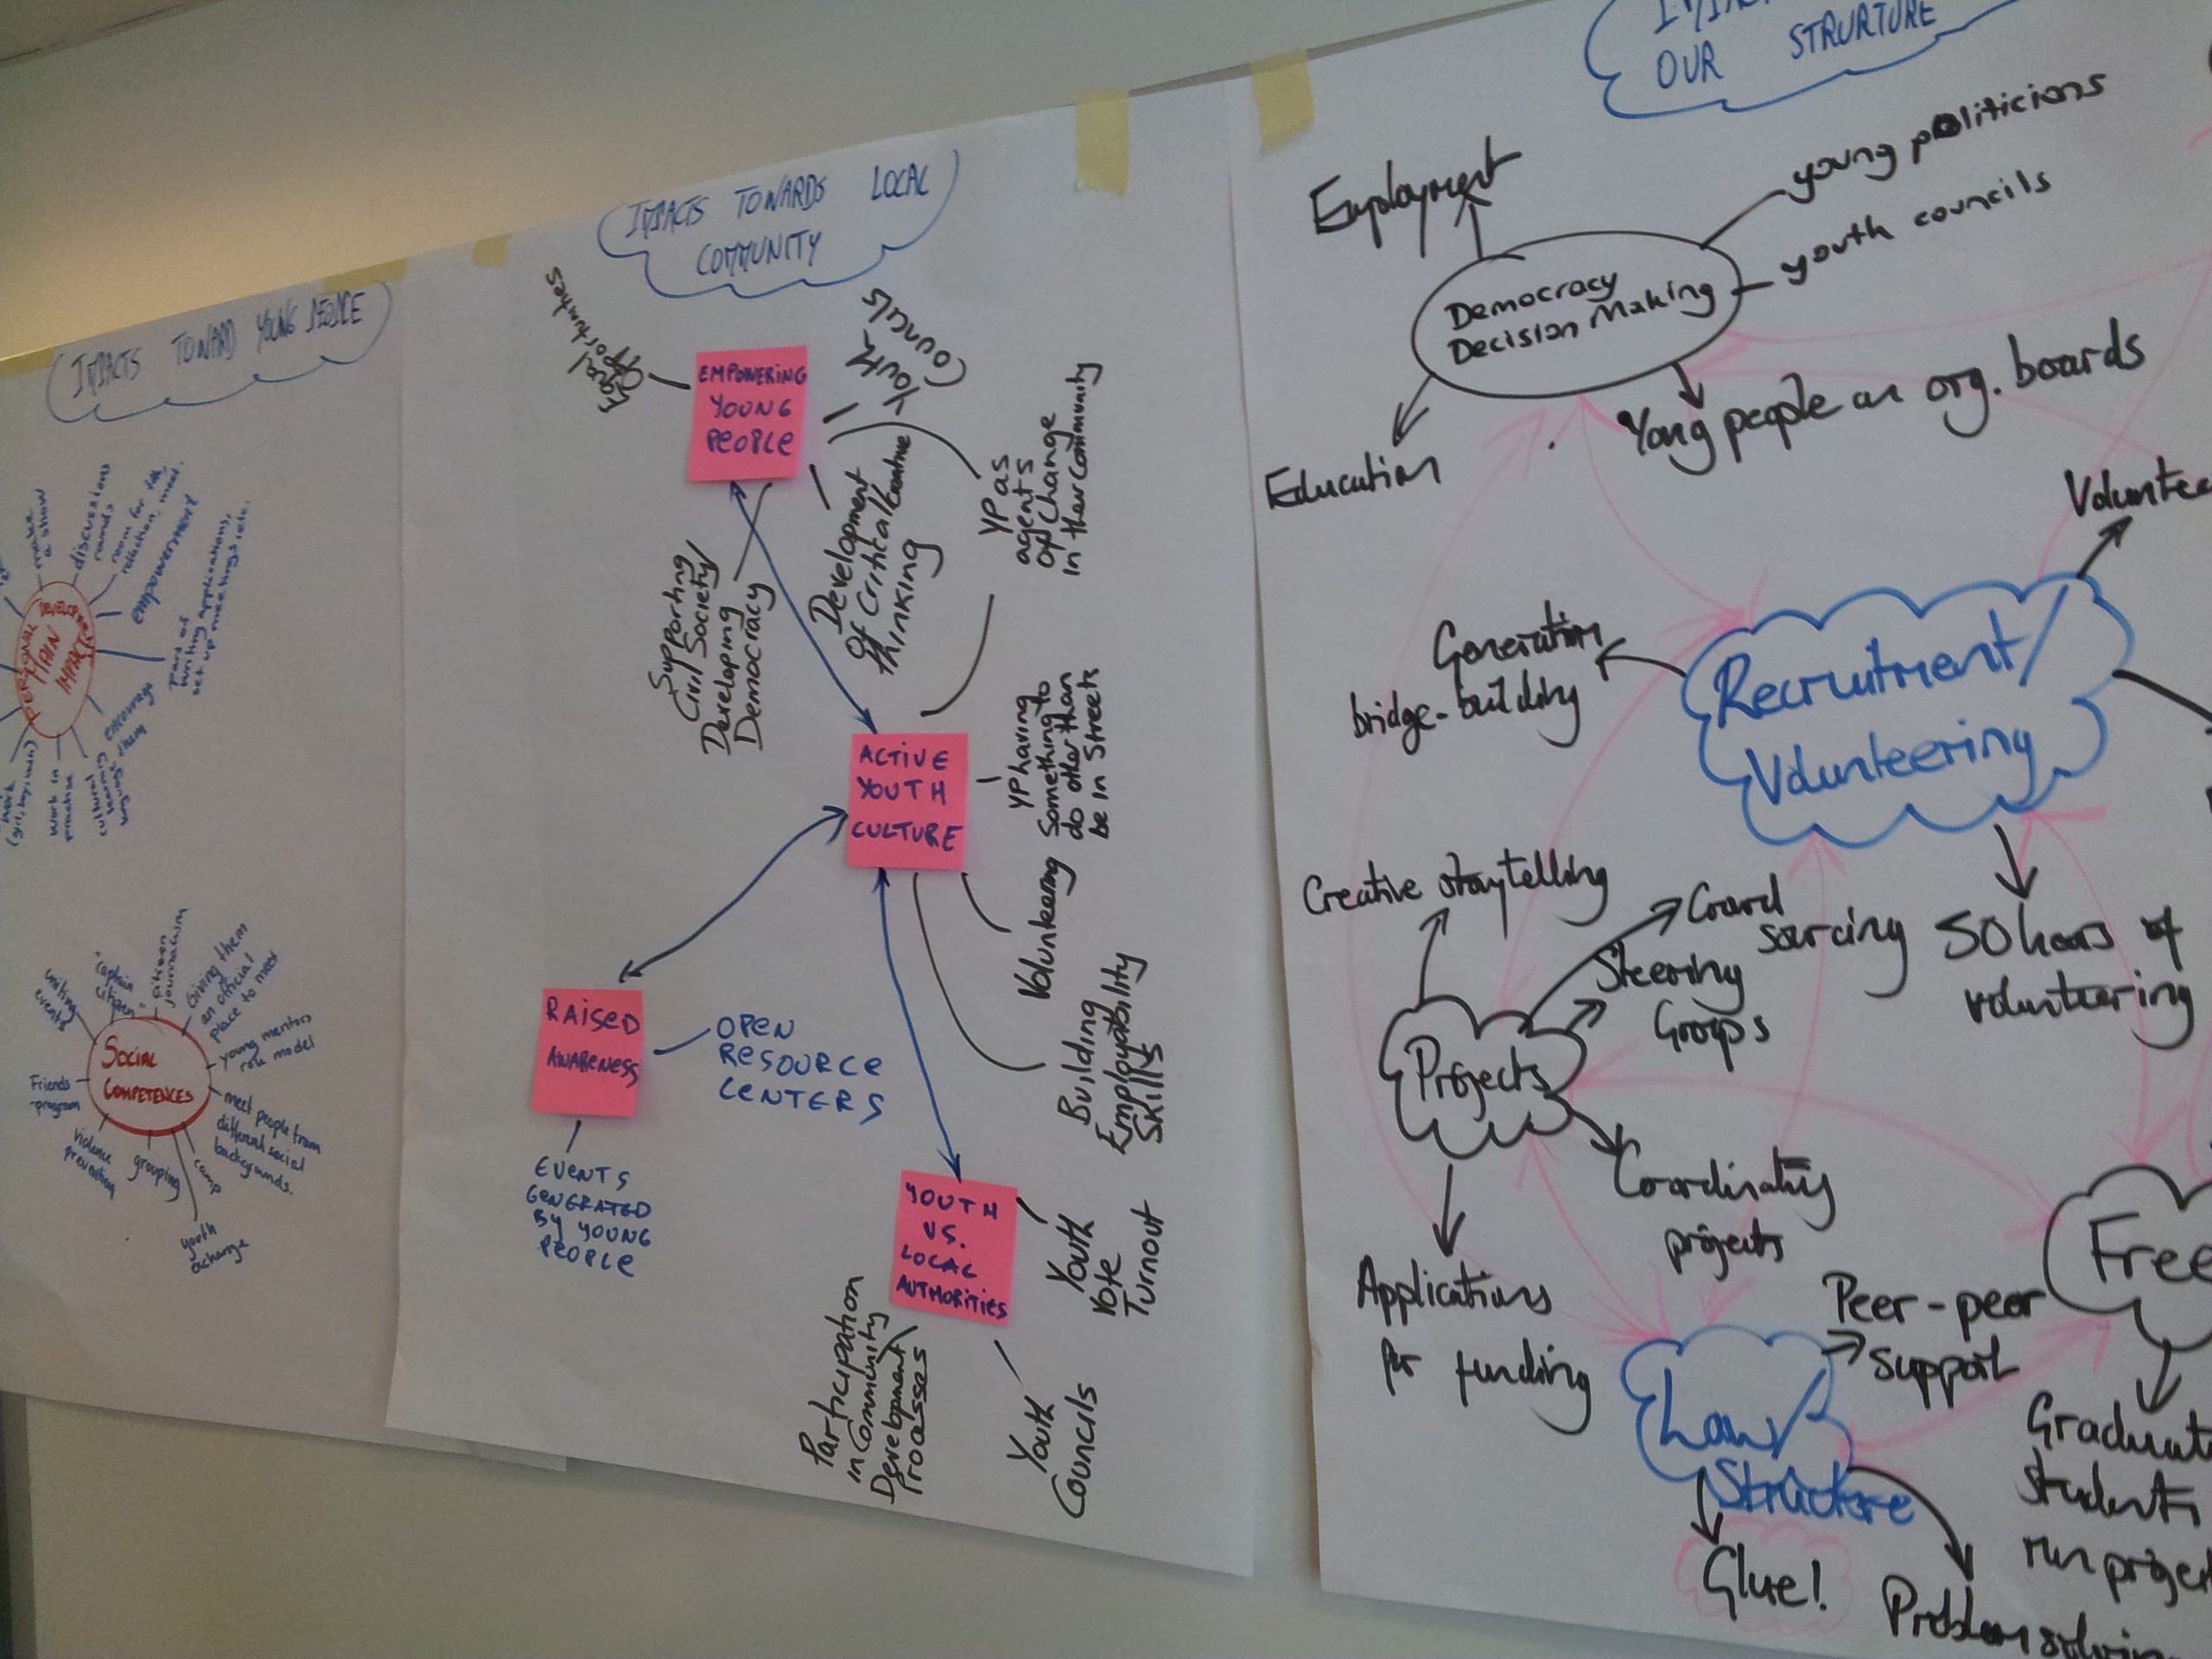 IMPACTS TOWARD YOUNG PEOPLE
make
a show
discussion
rounds
room for
reflection,
empowerment
part of
writing applications,
set up meetings etc.
encourage
them
cultural
learning
work in
practise
PERSONAL
MAIN
IMPACT
writing
events
"captain
citizen"
citizen
journalism
Giving them
an official
place to meet
young mentors
role model
meet people from
different social
backgrounds.
camp
youth
exchange
grouping
violence
prevention
Friends
-program
SOCIAL
COMPETENCES
IMPACTS TOWARDS LOCAL
COMMUNITY
Equal
Opportunities
EMPOWERING
YOUNG
PEOPLE
Youth
Councils
YP as
agents
of change
in their community
Development
Of Critical/creative
thinking
Supporting
Civil Society/
Developing
Democracy
ACTIVE
YOUTH
CULTURE
YP having
Something to
do other than
be in Streets
Volunteering
Building
Employability
Skills
RAISED
AWARENESS
OPEN
RESOURCE
CENTERS
EVENTS
GENERATED
BY YOUNG
PEOPLE
YOUTH
VS.
LOCAL
AUTHORITIES
Youth
Vote
Turnout
Youth
Councils
Participation
in Community
Development
Processes
OUR STRURTURE
Employment
young politicians
youth councils
Democracy
Decision Making
Yong people on org. boards
Education
Generation
bridge-building
Recruitment/
Volunteering
50 hours of
volunteering
Creative storytelling
Crowd
sourcing
Steering
Groups
Projects
Coordinating
projects
Applications
for funding
Peer-peer
support
Law/
Structure
Glue!
Free
students